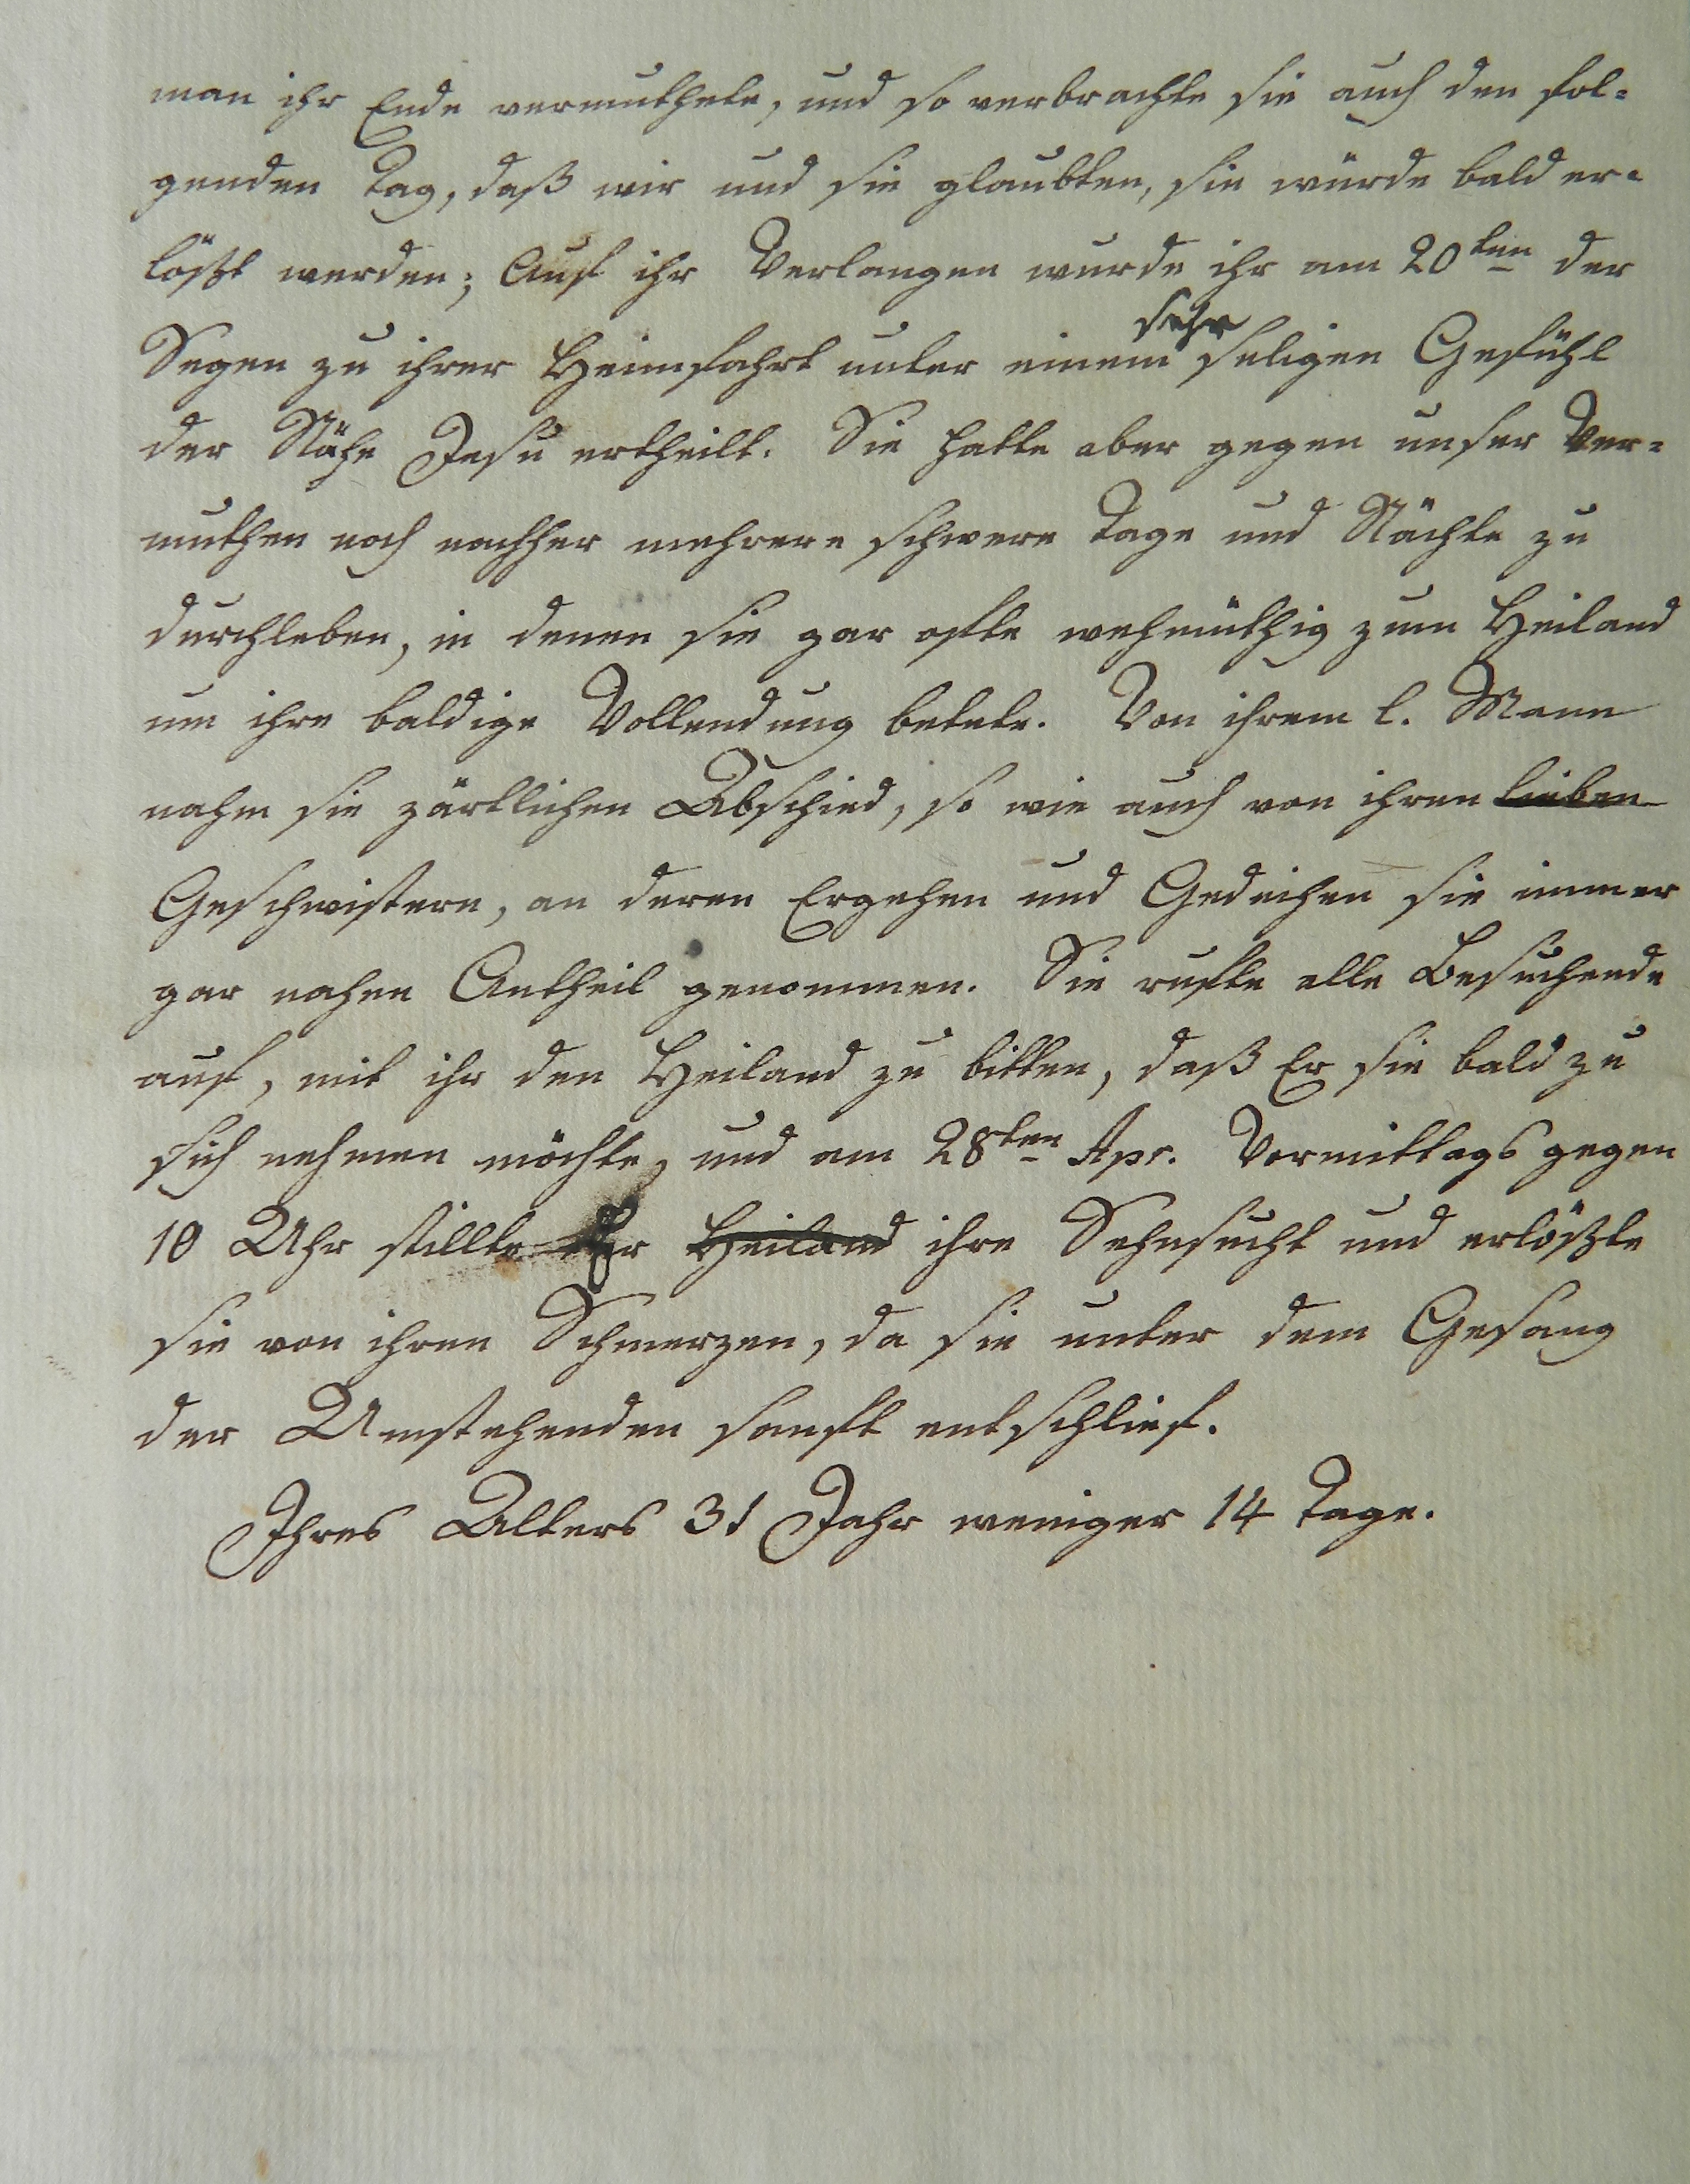 man ihr Ende vermuthete, und so verbrachte sie auch den fol-
genden Tag, daß wir und sie glaubten, sie würde bald er-
lößt werden; Auf ihr Verlangen wurde ihr am 20ten der
sehr
Segen zu ihrer Heimfahrt unter einem seligen Gefühl
der Nähe Jesu ertheilt. Sie hatte aber gegen unser Ver-
muthen noch nachher mehrere schwere Tage und Nächte zu
durchleben, in denen sie gar ofte wehmüthig zum Heiland
um ihre baldige Vollendung betete. Von ihrem l. Mann
nahm sie zärtlichen Abschied, so wie auch von ihren lieben
Geschwistern, an deren Ergehen und Gedeihen sie immer
gar nahen Antheil genommen. Sie rufte alle Besuchende
auf, mit ihr den Heiland zu bitten, daß Er sie bald zu
sich nehmen möchte, und am 28ten Apr. Vormittags gegen
10 Uhr stillte Er Heiland ihre Sehnsucht und erlößte
sie von ihren Schmerzen, da sie unter dem Gesang
der Umstehenden sanft entschlief.
Ihres Alters 31 Jahr weniger 14 Tage.